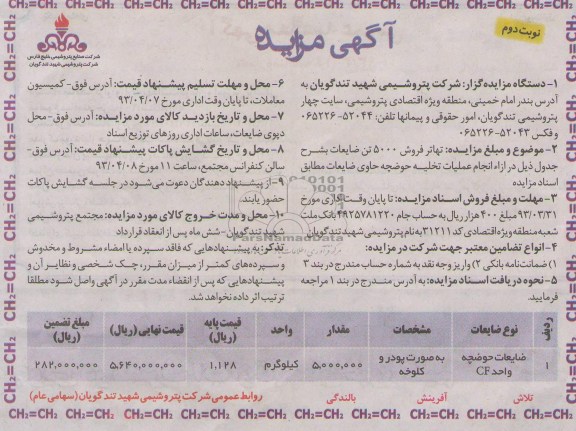 نوبت دوم
آگهی مزایده
شرکت صنایع پتروشیمی خلیج فارس
شرکت پتروشیمی شهید تندگویان
۱- دستگاه مزایده گزار: شرکت پتروشیمی شهید تندگویان به
آدرس بندر امام خمینی، منطقه ویژه اقتصادی پتروشیمی، سایت چهار
پتروشیمی تندگویان، امور حقوقی و پیمانها تلفن: ۵۲۰۴۴-۰۶۵۲۲۶
و فکس ۵۲۰۴۳-۰۶۵۲۲۶
۲- موضوع و مبلغ مزایده: تهاتر فروش ۵۰۰۰ تن ضایعات بشرح
جدول ذیل در ازاء انجام عملیات تخلیه حوضچه حاوی ضایعات مطابق
اسناد مزایده
۳- مهلت و مبلغ فروش اسناد مزایده: تا پایان وقت اداری مورخ
۹۳/۰۳/۳۱ مبلغ ۴۰۰ هزار ریال به حساب جام ۴۹۲۵۷۸۱۲۲۰ بانک ملت
شعبه منطقه ویژه اقتصادی کد ۳۱۲۱۱ به نام پتروشیمی شهید تندگویان
۴- انواع تضامین معتبر جهت شرکت در مزایده:
۱) ضمانت نامه بانکی ۲) واریز وجه نقد به شماره حساب مندرج در بند ۳
۵- نحوه دریافت اسناد مزایده: به آدرس مندرج در بند ۱ مراجعه
فرمایید.
۶- محل و مهلت تسلیم پیشنهاد قیمت: آدرس فوق- کمیسیون
معاملات، تا پایان وقت اداری مورخ ۹۳/۰۴/۰۷
۷- محل و تاریخ بازدید کالای مورد مزایده: آدرس فوق- محل
دپوی ضایعات، ساعات اداری روزهای توزیع اسناد
۸- محل و تاریخ گشایش پاکات پیشنهاد قیمت: آدرس فوق-
سالن کنفرانس مجتمع، ساعت ۱۱ مورخ ۹۳/۰۴/۰۸
۹- از پیشنهاد دهندگان دعوت می‌شود در جلسه گشایش پاکات
حضور یابند.
۱۰- محل و مدت خروج کالای مورد مزایده: مجتمع پتروشیمی
شهید تندگویان- شش ماه پس از انعقاد قرارداد
تذکر: به پیشنهادهایی که فاقد سپرده یا امضاء مشروط و مخدوش
و سپرده‌های کمتر از میزان مقرر، چک شخصی و نظایر آن و
پیشنهادهایی که پس از انقضاء مدت مقرر در آگهی واصل شود مطلقا
ترتیب اثر داده نخواهد شد.
ParsNamadData
ردیف نوع ضایعات مشخصات مقدار واحد قیمت پایه (ریال) قیمت نهایی (ریال) مبلغ تضمین (ریال)
۱ ضایعات حوضچه واحد CF به صورت پودر و کلوخه ۵,۰۰۰,۰۰۰ کیلوگرم ۱,۱۲۸ ۵,۶۴۰,۰۰۰,۰۰۰ ۲۸۲,۰۰۰,۰۰۰
تلاش آفرینش بالندگی روابط عمومی شرکت پتروشیمی شهید تندگویان (سهامی عام)
CH2=CH2 CH2=CH2 CH2=CH2 CH2=CH2 CH2=CH2 CH2=CH2 CH2=CH2